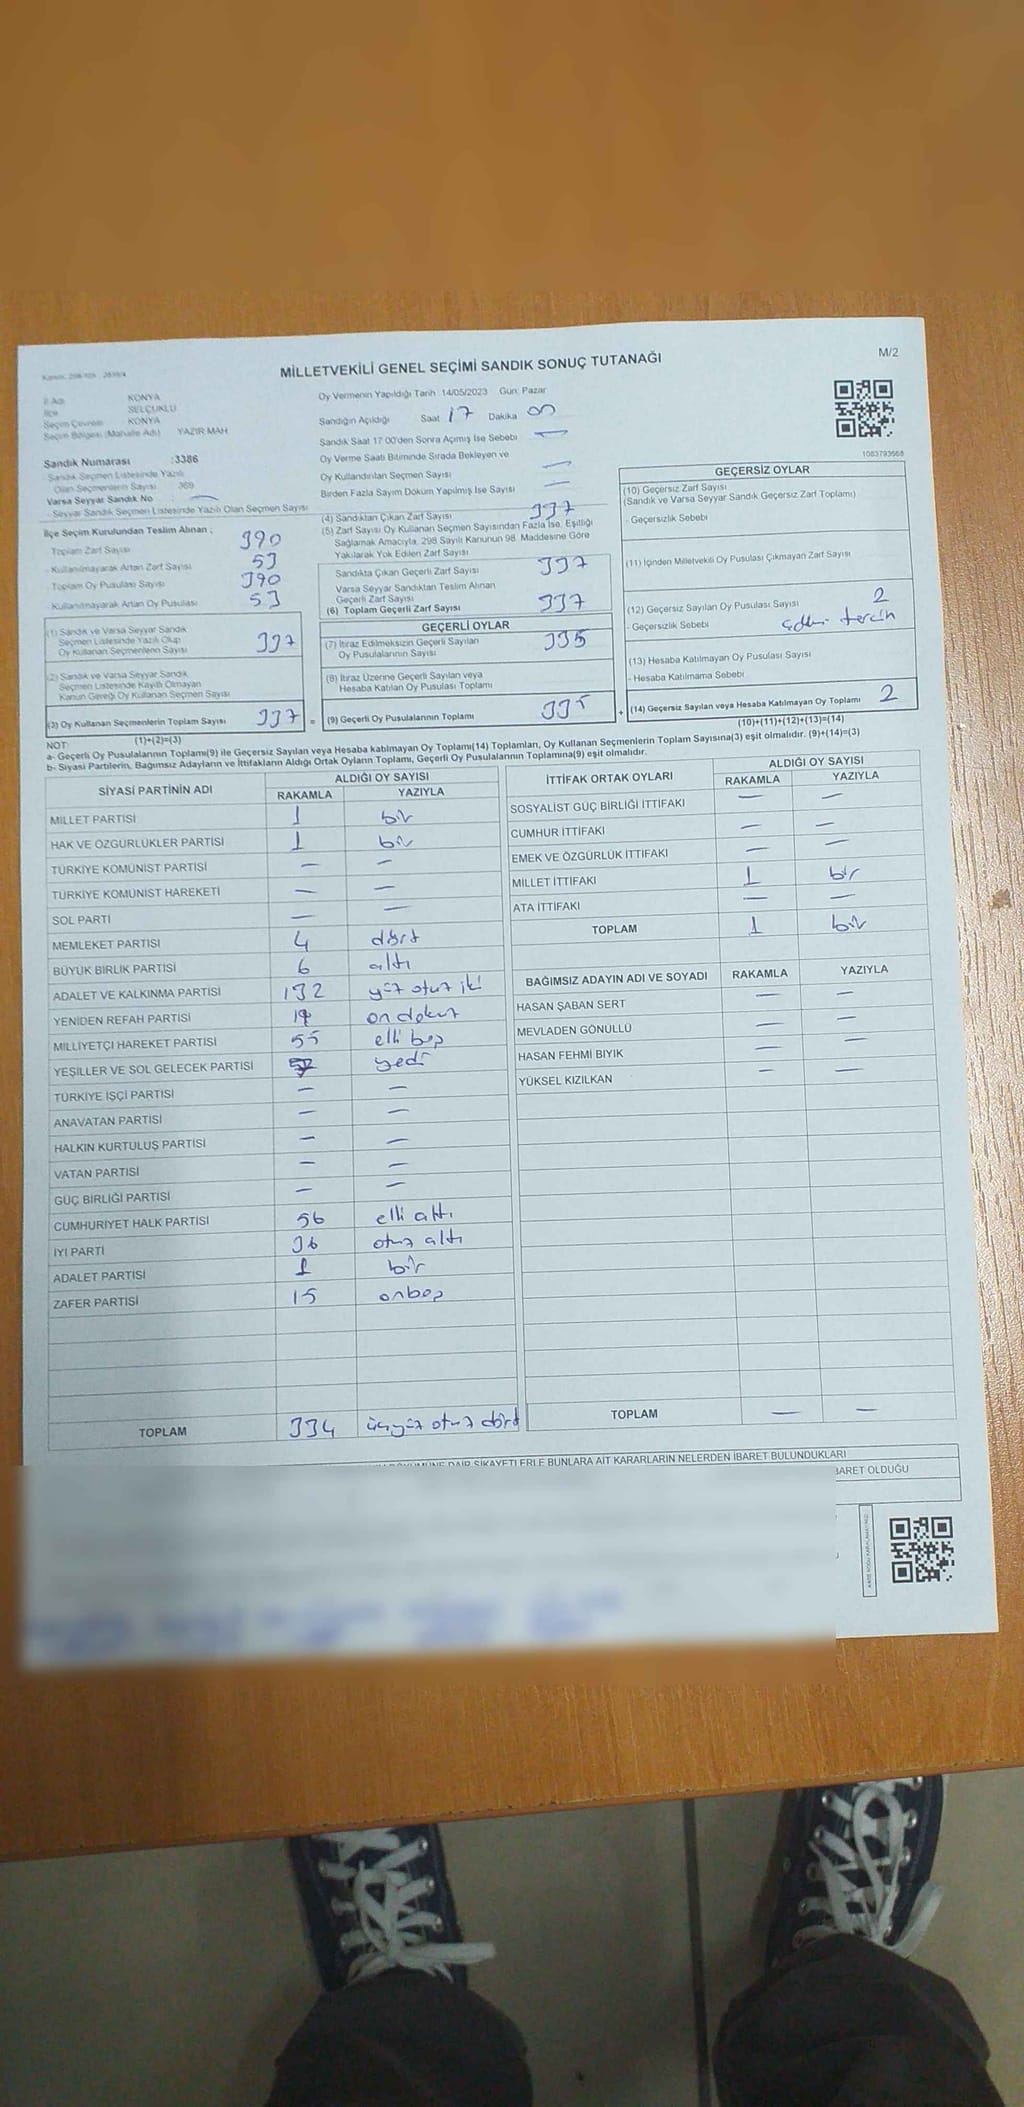 MİLLETVEKİLİ GENEL SEÇİMİ SANDIK SONUÇ TUTANAĞI
M/2
İl Adı KONYA
İlçe SELÇUKLU
Seçim Çevresi KONYA
Seçim Bölgesi (Mahalle Adı) YAZIR MAH
Sandık Numarası :3386
Sandık Seçmen Listesinde Yazılı
Olan Seçmenlerin Sayısı 369
Varsa Seyyar Sandık No : —
- Seyyar Sandık Seçmen Listesinde Yazılı Olan Seçmen Sayısı
Oy Vermenin Yapıldığı Tarih 14/05/2023 Gün: Pazar
Sandığın Açıldığı Saat 17 Dakika 00
Sandık Saat 17:00'den Sonra Açımış İse Sebebi —
Oy Verme Saati Bitiminde Sırada Bekleyen ve
Oy Kullandırılan Seçmen Sayısı —
Birden Fazla Sayım Döküm Yapılmış İse Sayısı —
1083793668
İlçe Seçim Kurulundan Teslim Alınan ;
- Toplam Zarf Sayısı 390
- Kullanılmayarak Artan Zarf Sayısı 53
- Toplam Oy Pusulası Sayısı 390
- Kullanılmayarak Artan Oy Pusulası 53
(1) Sandık ve Varsa Seyyar Sandık
Seçmen Listesinde Yazılı Olup
Oy Kullanan Seçmenlerin Sayısı 337
(2) Sandık ve Varsa Seyyar Sandık
Seçmen Listesinde Kayıtlı Olmayan
Kanun Gereği Oy Kullanan Seçmen Sayısı
(3) Oy Kullanan Seçmenlerin Toplam Sayısı 337 =
(1)+(2)=(3)
(4) Sandıktan Çıkan Zarf Sayısı 337
(5) Zarf Sayısı Oy Kullanan Seçmen Sayısından Fazla İse, Eşitliği
Sağlamak Amacıyla, 298 Sayılı Kanunun 98. Maddesine Göre
Yakılarak Yok Edilen Zarf Sayısı
Sandıkta Çıkan Geçerli Zarf Sayısı 337
Varsa Seyyar Sandıktan Teslim Alınan
Geçerli Zarf Sayısı
(6) Toplam Geçerli Zarf Sayısı 337
GEÇERLİ OYLAR
(7) İtiraz Edilmeksizin Geçerli Sayılan
Oy Pusulalarının Sayısı 335
(8) İtiraz Üzerine Geçerli Sayılan veya
Hesaba Katılan Oy Pusulası Toplamı
(9) Geçerli Oy Pusulalarının Toplamı 335 +
GEÇERSİZ OYLAR
(10) Geçersiz Zarf Sayısı
(Sandık ve Varsa Seyyar Sandık Geçersiz Zarf Toplamı)
- Geçersizlik Sebebi
(11) İçinden Milletvekili Oy Pusulası Çıkmayan Zarf Sayısı
(12) Geçersiz Sayılan Oy Pusulası Sayısı 2
- Geçersizlik Sebebi tercih
(13) Hesaba Katılmayan Oy Pusulası Sayısı
- Hesaba Katılmama Sebebi
(14) Geçersiz Sayılan veya Hesaba Katılmayan Oy Toplamı 2
(10)+(11)+(12)+(13)=(14)
NOT:
a- Geçerli Oy Pusulalarının Toplamı(9) ile Geçersiz Sayılan veya Hesaba katılmayan Oy Toplamı(14) Toplamları, Oy Kullanan Seçmenlerin Toplam Sayısına(3) eşit olmalıdır. (9)+(14)=(3)
b- Siyasi Partilerin, Bağımsız Adayların ve İttifakların Aldığı Ortak Oyların Toplamı, Geçerli Oy Pusulalarının Toplamına(9) eşit olmalıdır.
SİYASİ PARTİNİN ADI ALDIĞI OY SAYISI
RAKAMLA YAZIYLA
MİLLET PARTİSİ 1 bir
HAK VE ÖZGÜRLÜKLER PARTİSİ 1 bir
TÜRKİYE KOMÜNİST PARTİSİ — —
TÜRKİYE KOMÜNİST HAREKETİ — —
SOL PARTİ — —
MEMLEKET PARTİSİ 4 dört
BÜYÜK BİRLİK PARTİSİ 6 altı
ADALET VE KALKINMA PARTİSİ 132 yüz otuz iki
YENİDEN REFAH PARTİSİ 19 on dokuz
MİLLİYETÇİ HAREKET PARTİSİ 55 elli beş
YEŞİLLER VE SOL GELECEK PARTİSİ 7 yedi
TÜRKİYE İŞÇİ PARTİSİ — —
ANAVATAN PARTİSİ — —
HALKIN KURTULUŞ PARTİSİ — —
VATAN PARTİSİ — —
GÜÇ BİRLİĞİ PARTİSİ — —
CUMHURİYET HALK PARTİSİ 56 elli altı
İYİ PARTİ 36 otuz altı
ADALET PARTİSİ 1 bir
ZAFER PARTİSİ 15 onbeş
TOPLAM 334 üçyüz otuz dört
İTTİFAK ORTAK OYLARI ALDIĞI OY SAYISI
RAKAMLA YAZIYLA
SOSYALİST GÜÇ BİRLİĞİ İTTİFAKI — —
CUMHUR İTTİFAKI — —
EMEK VE ÖZGÜRLÜK İTTİFAKI — —
MİLLET İTTİFAKI 1 bir
ATA İTTİFAKI — —
TOPLAM 1 bir
BAĞIMSIZ ADAYIN ADI VE SOYADI RAKAMLA YAZIYLA
HASAN ŞABAN SERT — —
MEVLADEN GÖNÜLLÜ — —
HASAN FEHMİ BIYIK — —
YÜKSEL KIZILKAN — —
TOPLAM — —
DAİR ŞİKAYETLERLE BUNLARA AİT KARARLARIN NELERDEN İBARET BULUNDUKLARI
OLDUĞU